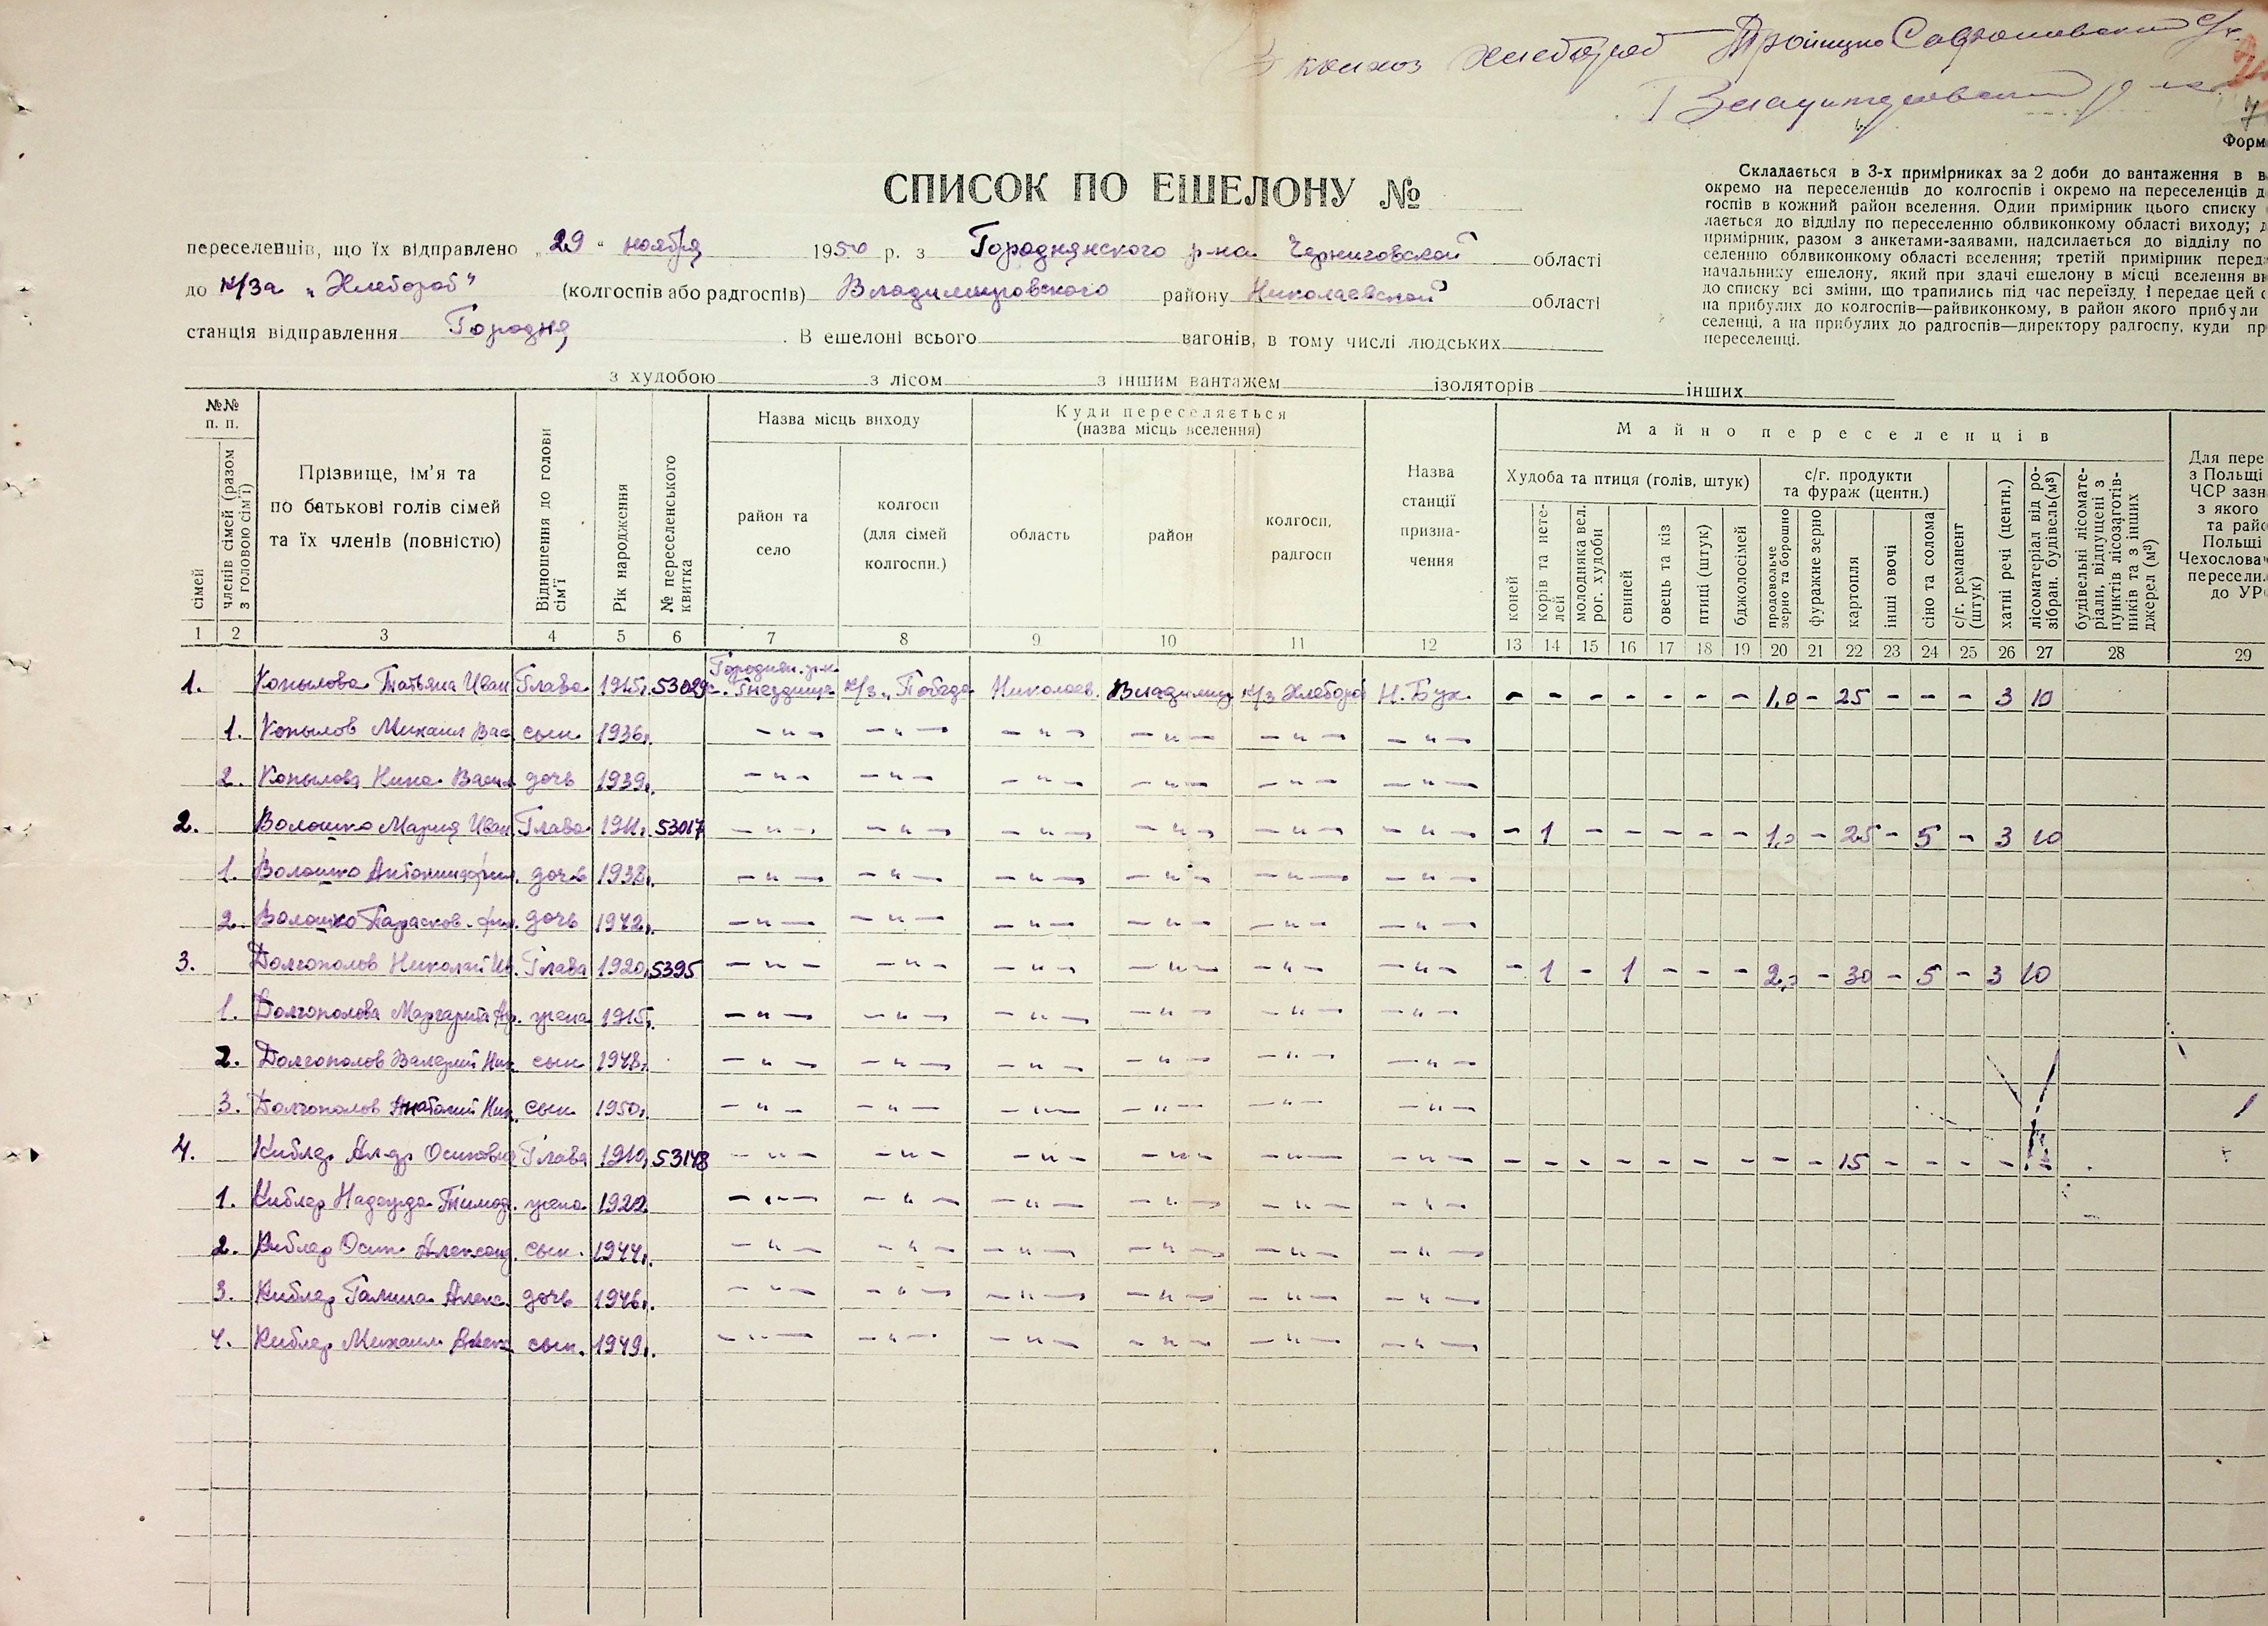 колхоз Хлебороб Троицко Сафоновский с/с
Владимировский р-на
7
Форм
СПИСОК ПО ЕШЕЛОНУ №
Складається в 3-х примірниках за 2 доби до вантаження в в
окремо на переселенців до колгоспів і окремо на переселенців д
госпів в кожний район вселення. Один примірник цього списку
лається до відділу по переселенню облвиконкому області виходу; д
примірник, разом з анкетами-заявами, надсилається до відділу по
селенню облвиконкому області вселення; третій примірник перед
начальнику ешелону, який при здачі ешелону в місці вселення вн
до списку всі зміни, що трапились під час переїзду, і передає цей с
на прибулих до колгоспів—райвиконкому, в район якого прибули
селенці, а на прибулих до радгоспів—директору радгоспу, куди пр
переселенці.
переселенців, що їх відправлено „29" ноября 1950 р. з Городнянского р-на Черниговской області
до к/за „Хлебороб" (колгоспів або радгоспів) Владимировского району Николаевской області
станція відправлення Городня. В ешелоні всього вагонів, в тому числі людських
з худобою з лісом з іншим вантажем ізоляторів інших
№№ п. п.
сімей
членів сімей (разом з головою сім'ї)
Прізвище, ім'я та
по батькові голів сімей
та їх членів (повністю)
Відношення до голови сім'ї
Рік народження
№ переселенського квитка
Назва місць виходу
район та
село
колгосп
(для сімей
колгоспн.)
Куди переселяється
(назва місць вселення)
область
район
колгосп,
радгосп
Назва
станції
призна-
чення
Майно переселенців
Худоба та птиця (голів, штук)
коней
корів та нете-
лей
молодняка вел.
рог. худоби
свиней
овець та кіз
птиці (штук)
бджолосімей
с/г. продукти
та фураж (центн.)
продовольче
зерно та борошно
фуражне зерно
картопля
інші овочі
сіно та солома
с/г. реманент
(штук)
хатні речі (центн.)
лісоматеріал від ро-
зібран. будівель (м³)
будівельні лісомате-
ріали, відпущені з
пунктів лісозаготів-
ників та з інших
джерел (м³)
Для пере
з Польщі
ЧСР зазн
з якого
та райо
Польщі
Чехослова
пересели
до УР
1 2 3 4 5 6 7 8 9 10 11 12 13 14 15 16 17 18 19 20 21 22 23 24 25 26 27 28 29
Городнян. р-н.
1. Копылова Татьяна Иван Глава 1915. 53029 с. Гнездище к/з „Победа Николаев. Владимир к/з Хлебороб Н. Буг. - - - - - - - 1,0 - 25 - - - 3 10
1. Копылов Михаил Вас. сын 1936. — " — — " — — " — — " — — " — — " —
2. Копылова Нина Васил дочь 1939. — " — — " — — " — — " — — " — — " —
2. Волошко Мария Иван Глава 1911. 53017 — " — — " — — " — — " — — " — — " — - 1 - - - - - 1,0 - 25 - 5 - 3 10
1. Волошко Антонина Фил. дочь 1938. — " — — " — — " — — " — — " — — " —
2. Волошко Парасков. Фил. дочь 1942. — " — — " — — " — — " — — " — — " —
3. Долгополов Николай Ив. Глава 1920. 5395 — " — — " — — " — — " — — " — — " — - 1 - 1 - - - 2,0 - 30 - 5 - 3 10
1. Долгополова Маргарита Ар. жена 1915. — " — — " — — " — — " — — " — — " —
2. Долгополов Валерий Ник. сын 1948. — " — — " — — " — — " — — " — — " —
3. Долгополов Анатолий Ник. сын 1950. — " — — " — — " — — " — — " — — " —
4. Киблер Ал-др Осипович Глава 1910. 53148 — " — — " — — " — — " — — " — — " — - - - - - - - - - 15 - - - -
1. Киблер Надежда Тимоф. жена 1922 — " — — " — — " — — " — — " — — " —
2. Киблер Осип Александ. сын. 1944. — " — — " — — " — — " — — " — — " —
3. Киблер Галина Алекс. дочь 1946. — " — — " — — " — — " — — " — — " —
4. Киблер Михаил Алекс сын. 1949. — " — — " — — " — — " — — " — — " —